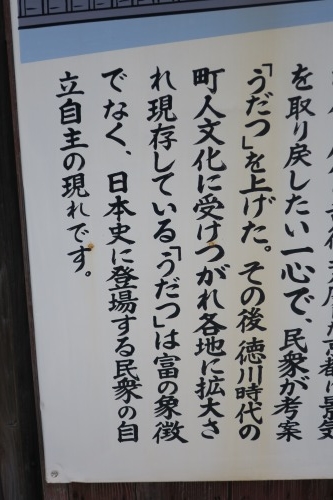 を取り戻したい一心で、民衆が考案
「うだつ」を上げた。その後徳川時代の
町人文化に受けつがれ各地に拡大さ
れ現存している「うだつ」は富の象徴
でなく、日本史に登場する民衆の自
立自主の現れです。